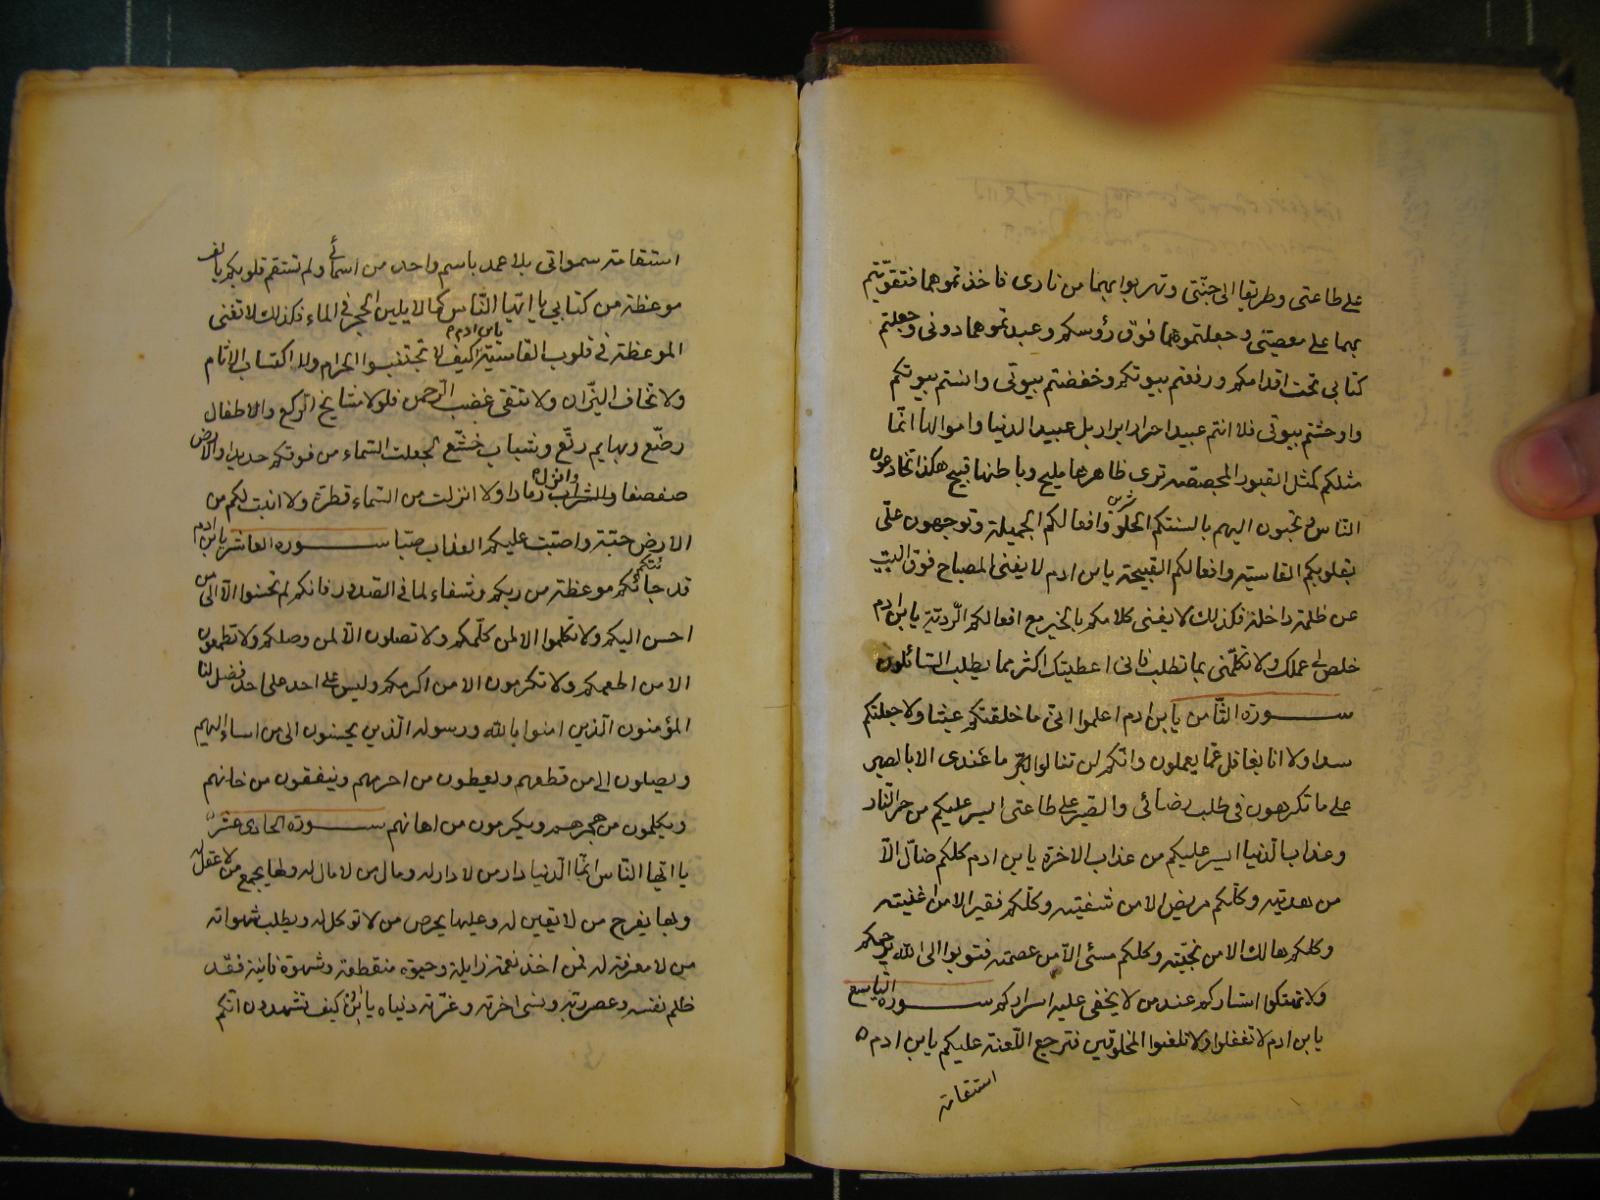 على طاعتى وطريقا الى جنّتى وتهربوا بهما من نارى فاخذتموهما فتقوّيتم
بهما على معصيتى وجعلتموهما فوق رؤسكم وعبدتموهما دونى وجعلتم
كتابى تحت اقدامكم ورفعتم بيوتكم وخفضتم بيوتى وانستم بيوتكم
واوحشتم بيوتى فلا انتم عبيد احرار ابرار بل عبيد الدنيا واموالها انّما
مثلكم كمثل القبور المجصصة ترى ظاهرها مليح وباطنها قبيح هكذا تخادعون
الناس وتحببون اليهم بالسنتكم الحلو وافعالكم الجميلة وتوجهون علىّ
بقلوبكم القاسية وافعالكم القبيحة يابن ادم لا يغنى المصباح فوق البيت
عن ظلمة داخلة فكذلك لا يغنى كلامكم بالخير مع افعالكم الردّية يابن ادم
خلص لى عملك ولا تكلّمنى بما تطلب فانى اعطيتك اكثر مما يطلب السّائلون
سورة الثامن يابن ادم اعلموا انّى ما خلقتكم عبثا ولا جعلتكم
سدا ولا انا بغافل عمّا يعملون وانّكم لن تنالوا البرّ ما عندى الا بالصبر
على ما تكرهون فى طلب رضائى والصبر على طاعتى ايسر عليكم من حرّ النار
وعذاب الدنيا ايسر عليكم من عذاب الاخرة يابن ادم كلكم ضالّ الّا
من هديته وكلّكم مريض الا من شفيته وكلّكم فقير الا من اغنيته
وكلكم هالك الا من نجيّته وكلكم مسئ الّا من عصمته فتوبوا الى الله يرحمكم
ولا تهتكوا استاركم عند من لا يخفى عليه اسراركم سورة التاسع
يابن ادم لا تغفلوا ولا تلعنوا المخلوقين فترجع اللعنة عليكم يابن ادم
استقامة
استقامة سمواتى بلا عمد باسم واحد من اسمائى ولم تستقم قلوبكم بالف
موعظة من كتابى يا ايّها النّاس كما لا يلين الحجر فى الماء فكذلك لا تغنى
الموعظة فى قلوب القاسية يابن ادم كيف لا تجتنبوا الحرام ولا اكتساب الاثام
ولا تخاف النيّران ولا تتقى غضب الرّحمن فلولا مشايخ الرّكع والاطفال
رضّع وبهايم رتّع وشباب خشّع لجعلت السّماء من فوقكم حديدا والارض
صفصفا والتراب رمادا ولا انزلت من السّماء قطرة ولا انبت لكم من
الارض حبّة واصبّت عليكم العذاب صبّا سورة العاشر يابن ادم
قد جائتكم موعظة من ربكم وشفاء لما فى الصدور فانكم لم تحسنوا الّا الى من
احسن اليكم ولا تكلموا الا لمن كلّمكم ولا تصلون الّا لمن وصلكم ولا تطعمون
الا من اطعمكم ولا تكرمون الا من اكرمكم وليس على احد على احد فضل انما
المؤمنون الّذين امنوا بالله ورسوله الّذين يحسنون الى من اساء اليهم
ويصلون الى من قطعهم ويعطون من احرمهم وينفقون من خانهم
ويكلمون من هجرهم ويكرمون من اهانهم سورة الحادى عشر
يا ايّها النّاس انّما الدّنيا دار من لا دار له ومال من لا مال له ولها يجمع من لا عقل له
وبها يفرح من لا يقين له وعليها يحرص من لا توكل له ويطلب شهواته
من لا معرفة له فمن اخذ نعمة زايلة وحيوة منقطعة وشهوة فانية فقد
ظلم نفسه وعصى ربّه ونسى اخرته وغرّته دنياه يابن ادم كيف تشهدون انّكم